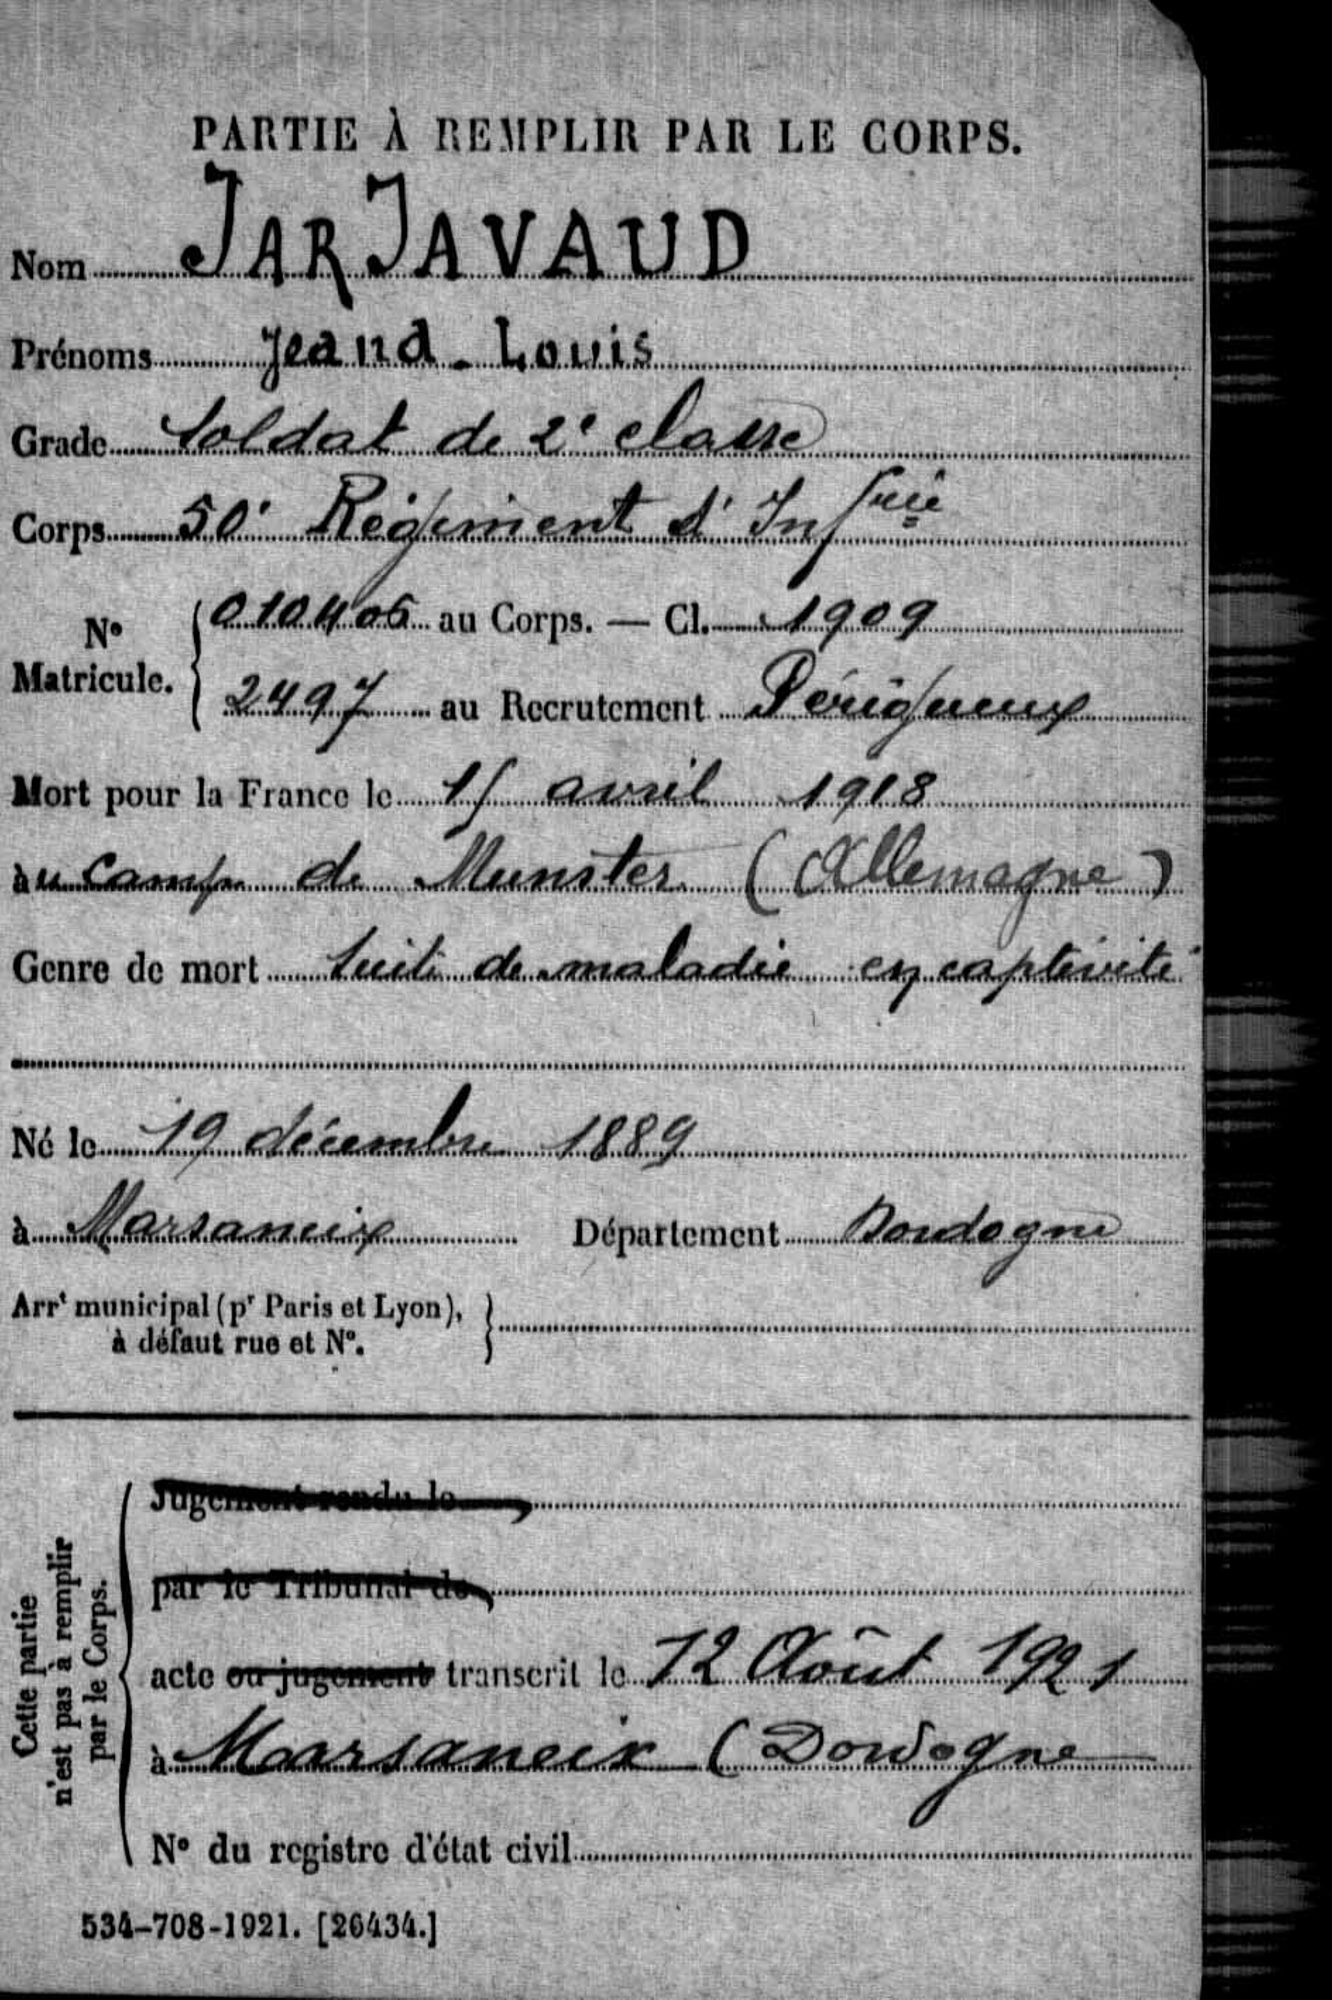 PARTIE À REMPLIR PAR LE CORPS.
Nom JARJAVAUD
Prénoms Jeand - Louis
Grade Soldat de 2e classe
Corps 50e Régiment d'Infrie
N° Matricule. 010406 au Corps. — Cl. 1909
2497 au Recrutement Périgueux
Mort pour la France le 15 avril 1918
au Camp de Munster (Allemagne)
Genre de mort Suite de maladie en captivité
Né le 19 décembre 1889
à Marsaneix Département Dordogne
Arrt municipal (pr Paris et Lyon),
à défaut rue et N°.
Cette partie
n'est pas à remplir
par le Corps.
Jugement rendu le
par le Tribunal de
acte ou jugement transcrit le 12 Août 1921
à Marsaneix (Dordogne
N° du registre d'état civil
534-708-1921. [26434.]